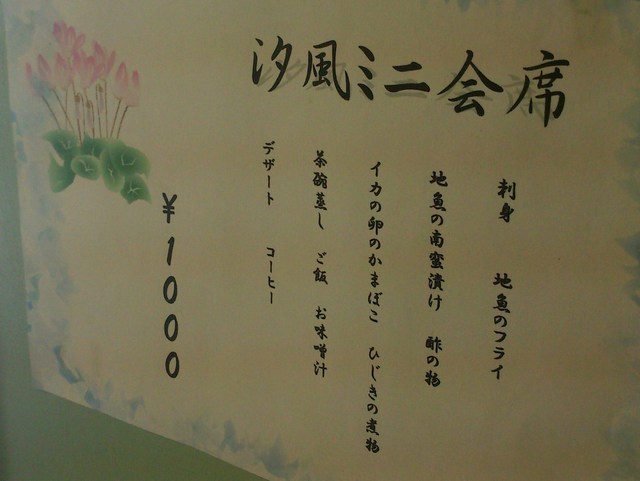 汐風ミニ会席
刺身　地魚のフライ
地魚の南蛮漬け　酢の物
イカの卵のかまぼこ　ひじきの煮物
茶碗蒸し　ご飯　お味噌汁
デザート　コーヒー
¥1000